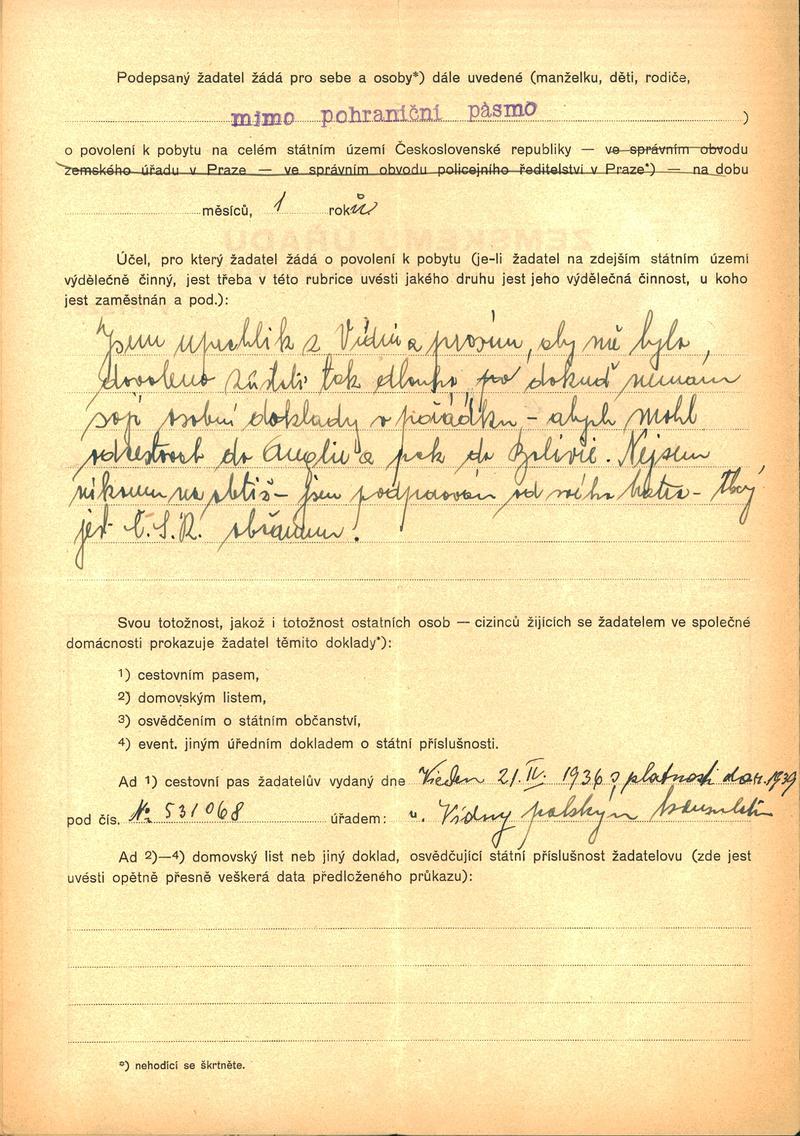 Podepsaný žadatel žádá pro sebe a osoby*) dále uvedené (manželku, děti, rodiče,
mimo pohraniční pásmo )
o povolení k pobytu na celém státním území Československé republiky — ve správním obvodu
zemského úřadu v Praze — ve správním obvodu policejního ředitelství v Praze*) — na dobu
měsíců, 1 roků
Účel, pro který žadatel žádá o povolení k pobytu (je-li žadatel na zdejším státním území
výdělečně činný, jest třeba v této rubrice uvésti jakého druhu jest jeho výdělečná činnost, u koho
jest zaměstnán a pod.):
Jsem uprchlik z Vídně a prosím, aby mě bylo
dovoleno zůstati tak dlouho po dokud nemám
osobní doklady v pořádku, – abych mohl
odcestovat do Anglie a pak do Bolivie. Nejsem
nikomu na obtíž – jsem podporován od svého bratra –
jest Č.S.R. občanem.
Svou totožnost, jakož i totožnost ostatních osob — cizinců žijících se žadatelem ve společné
domácnosti prokazuje žadatel těmito doklady*):
1) cestovním pasem,
2) domovským listem,
3) osvědčením o státním občanství,
4) event. jiným úředním dokladem o státní příslušnosti.
Ad 1) cestovní pas žadatelův vydaný dne 21. IV. 1936 s platností do r. 1939
pod čís. No 531068 úřadem: Vídny polským
Ad 2)—4) domovský list neb jiný doklad, osvědčující státní příslušnost žadatelovu (zde jest
uvésti opětně přesně veškerá data předloženého průkazu):
*) nehodící se škrtněte.